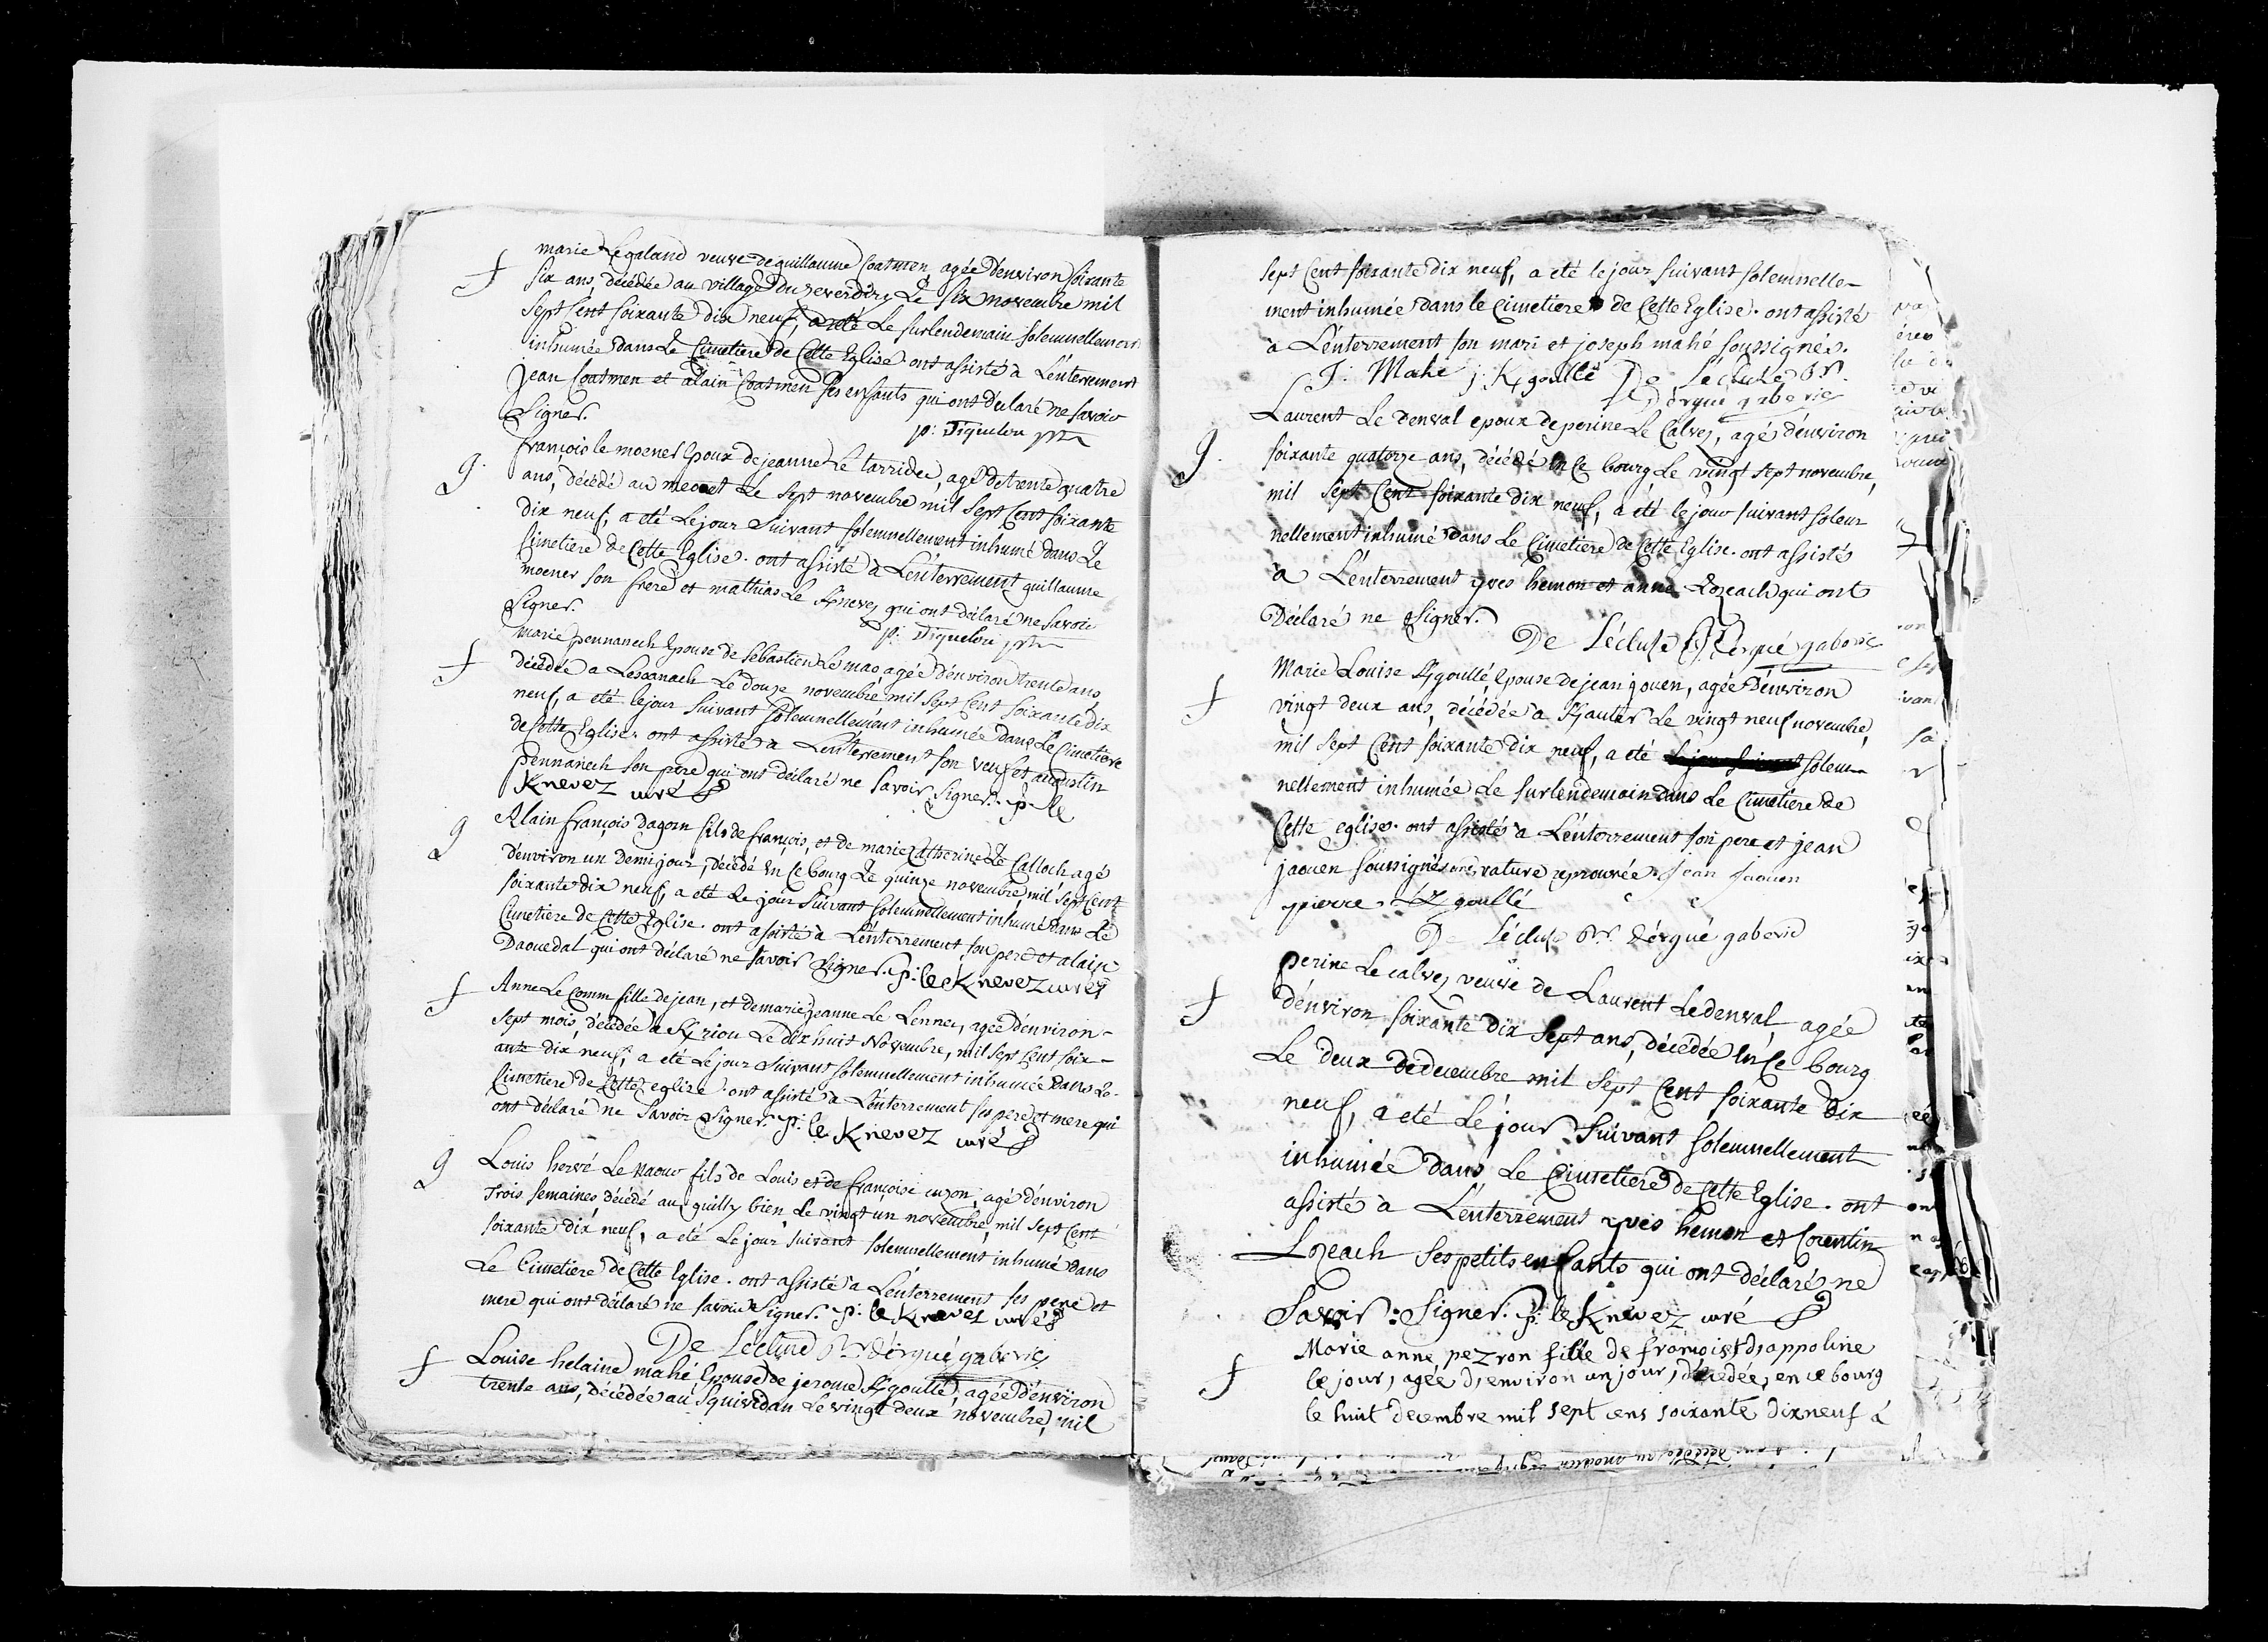 marie Le galand veuve de guillaume Coatmen, agée d'environ soixante
f six ans, décédée au village du reverdiry Le six novembre mil
sept cent soixante dix neuf, a eté Le surlendemain solemnellement
inhumée dans Le Cimetiere de Cette Eglise. ont assisté a L'enterrement
jean Coatmen et alain Coatmen ses enfants qui ont declaré ne savoir
signer.
p: Tiquelou ptre
g. françois le moener Epoux de jeanne Le tarridec, agé de trente quatre
ans, décédé au Le sept novembre mil sept Cent soixante
dix neuf, a eté Le jour suivant solemnellement inhumé dans Le
Cimetiere de Cette Eglise. ont assisté a L'enterrement guillaume
moener son frere et mathias Le Kneves qui ont déclaré ne savoir
signer.
p: Tiquelou ptre
f marie pennanech Epouse de sébastien Le mao agée d'environ trente ans
décédée a Lescanach Le douze novembre mil sept Cent soixante dix
neuf, a eté le jour suivant solemnellement inhumée dans Le Cimetiere
de Cette Eglise. ont assisté a L'enterrement son veuf et augustin
pennanech son pere qui ont déclaré ne savoir signer. p. le
Knevez curé
g Alain françois Dagorn fils de françois, et de marie Catherine Le Calloch agé
d'environ un Demi jour, décédé En Ce bourg Le quinze novembre, mil sept Cent
soixante dix neuf, a eté Le jour suivant solemnellement inhumé dans Le
Cimetiere de Cette Eglise. ont assisté a L'enterrement son pere et alain
Daouedal qui ont déclaré ne savoir signer. p: le Knevez curé
f Anne Le Comm fille de jean, et de marie jeanne Le Lennec, agée d'environ
sept mois, décédée a Kriou Le dix huit Novembre, mil sept Cent soix-
ante dix neuf, a eté Le jour suivant solemnellement inhumée dans Le
Cimetiere de Cette eglise. ont assisté a L'enterrement ses pere et mere qui
ont déclaré ne savoir signer. p: le Knevez curé
g Louis hervé Le naour fils de Louis et de françoise cuzon, agé d'environ
Trois semaines décédé au quilly bien Le vingt un novembre, mil sept Cent
soixante dix neuf, a eté Le jour suivant solemnellement inhumé dans
Le Cimetiere de Cette Eglise. ont assisté a L'enterrement ses pere et
mere qui ont déclaré ne savoir signer. p: le Knevez curé
De Lécluse Rr d'ergué gaberic
f Louise helaine mahé Epouse de jerome Kgoullé, agée d'environ
trente ans, décédée au squividan Le vingt deux novembre, mil
sept Cent soixante dix neuf, a eté le jour suivant solemnelle-
ment inhumée dans le Cimetiere de Cette Eglise. ont assisté
à L'enterrement son mari et joseph mahé soussignés.
J: Mahé j: Kgoullé De Lécluse Rr
d'ergué gaberic
Laurent Le denval epoux de perine Le Calvez, agé d'environ
g. soixante quatorze ans, décédé En Ce bourg Le vingt sept novembre,
mil sept Cent soixante dix neuf, a eté le jour suivant solem
nellement inhumé dans Le Cimetiere de Cette Eglise. ont assistés
a L'enterrement yves hemon et anne Lozeach qui ont
Déclaré ne signer.
De Lécluse Rr d'ergué gaberic
f Marie Louise Kgoullé Epouse de jean jouen, agée d'environ
vingt deux ans, décédée a Kfauter Le vingt neuf novembre,
mil sept Cent soixante dix neuf, a eté le jour suivant solem-
nellement inhumée Le surlendemain dans Le Cimetiere de
Cette eglise. ont assistés a L'enterrement son pere et jean
jaouen soussignés une rature reprouvée. jean jaouen
pierre Kgoullé
De Lécluse Rr d'ergué gaberic
f perine Le calvez veuve de Laurent Le denval agée
d'environ soixante dix sept ans, décédée En Ce bourg
Le deux de decembre mil sept Cent soixante dix
neuf, a eté Le jour suivant solemnellement
inhumée dans Le Cimetiere de Cette Eglise. ont
assisté à L'enterrement yves hemon et Corentin
Lozeach ses petits enfants qui ont déclarés ne
savoir signer. p: le Knevez curé
f Marie anne pezron fille de francois et d'appoline
le jour, agée d'environ un jour, décédée, en ce bourg
le huit decembre mil sept cens soixante dix neuf a